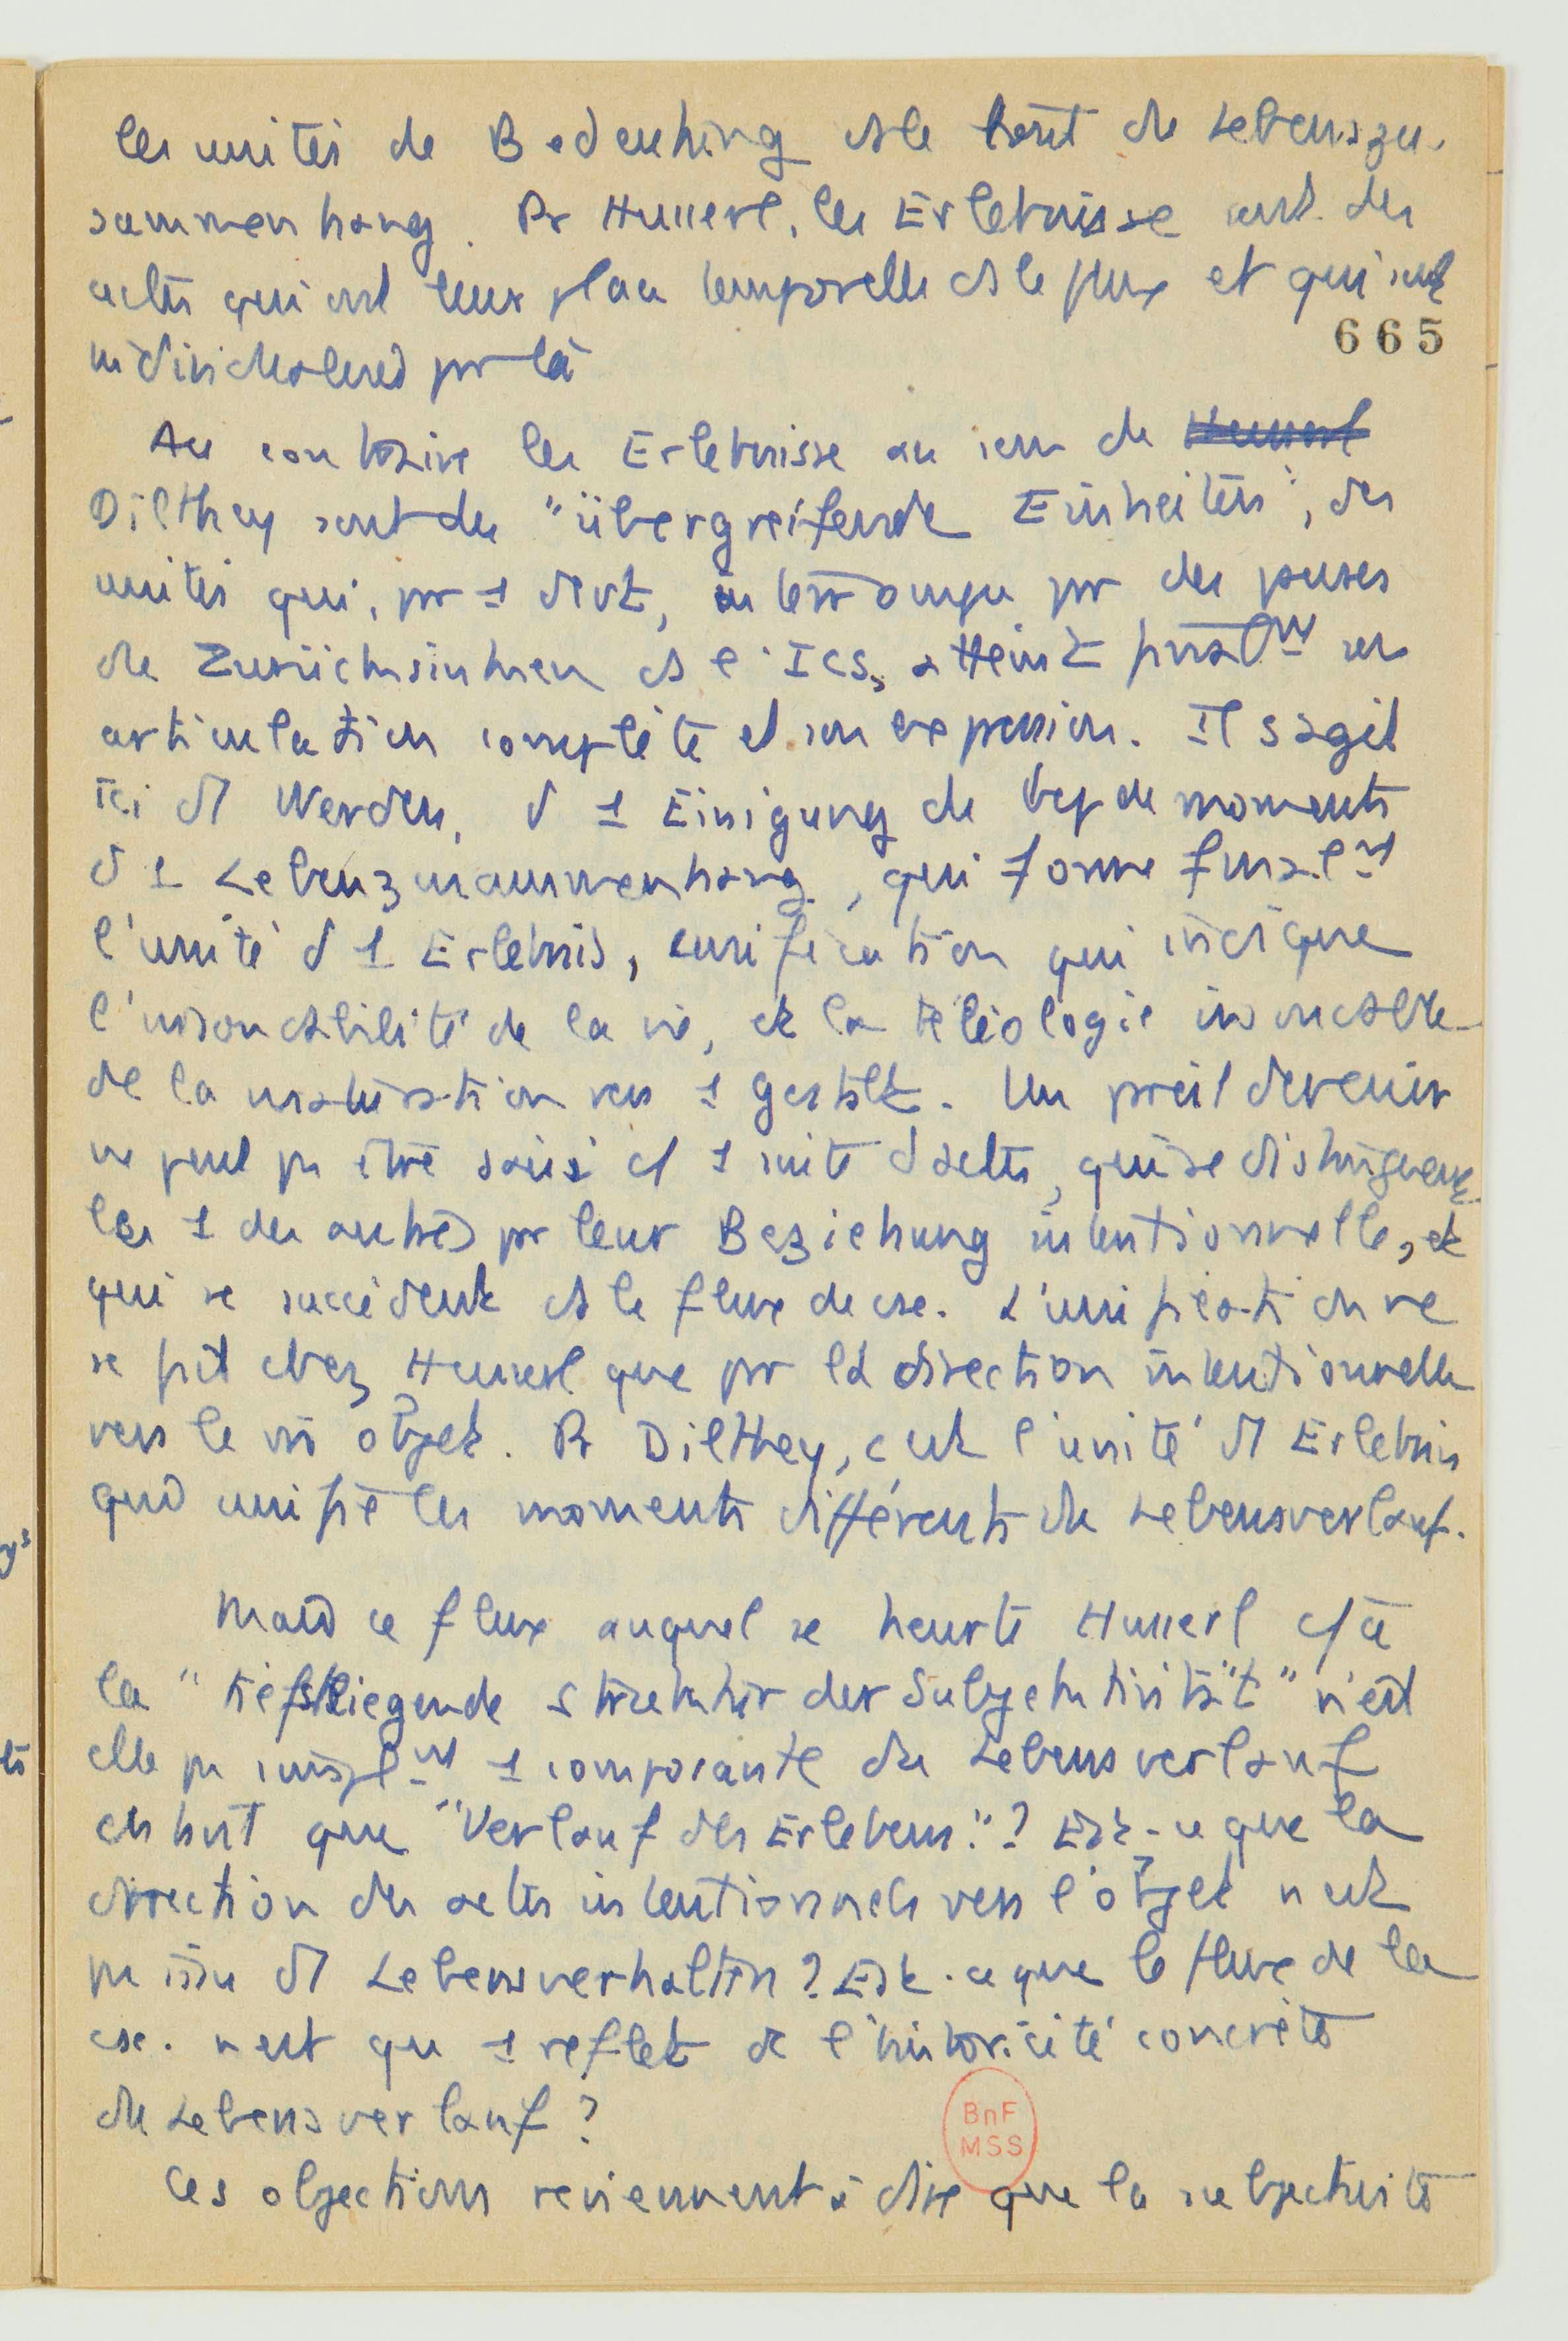 les unités de Bedeutung ds le tout du Lebenszu-
sammenhang. Pr Husserl, les Erlebnisse sont des
actes qui ont leur place temporelle ds le flux et qui sont
665
individualisés par là
Au contraire les Erlebnisse au sens de Husserl
Dilthey sont des "übergreifende Einheiten", des
unités qui, pr 1 devt, interrompu pr des pauses
de Zurücksinken ds l'Ics, atteint finalnt son
articulation complète et son expression. Il s'agit
ici d'1 Werden, d'1 Einigung de bcp de moments
d'1 Lebenszusammenhang, qui forme finalnt
l'unité d'1 Erlebnis, unification qui indique
l'insondabilité de la vie, et la téléologie insondable
de la maturation vers 1 Gestalt. Un pareil devenir
ne peut pas être saisi c/ 1 suite d'actes, qui se distinguent
les 1 des autres pr leur Beziehung intentionnelle, et
qui se succèdent ds le flux de cse. L'unification ne
se fait chez Husserl que pr la direction intentionnelle
vers le m̄ objet. Pr Dilthey, c'est l'unité d'1 Erlebnis
qui unifie les moments différents du Lebensverlauf.
Mais ce flux auquel se heurte Husserl c/ à
la "tiefstliegende Struktur der Subjektivität" n'est
elle pas simplnt 1 composante du Lebensverlauf
en tant que "Verlauf des Erlebens"? Est-ce que la
direction des actes intentionnels vers l'objet n'est
pas issue d'1 Lebensverhalten? Est-ce que le flux de la
cse. n'est qu'1 reflet de l'historicité concrète
du Lebensverlauf?
BnF
MSS
Ces objections reviennent à dire que la subjectivité